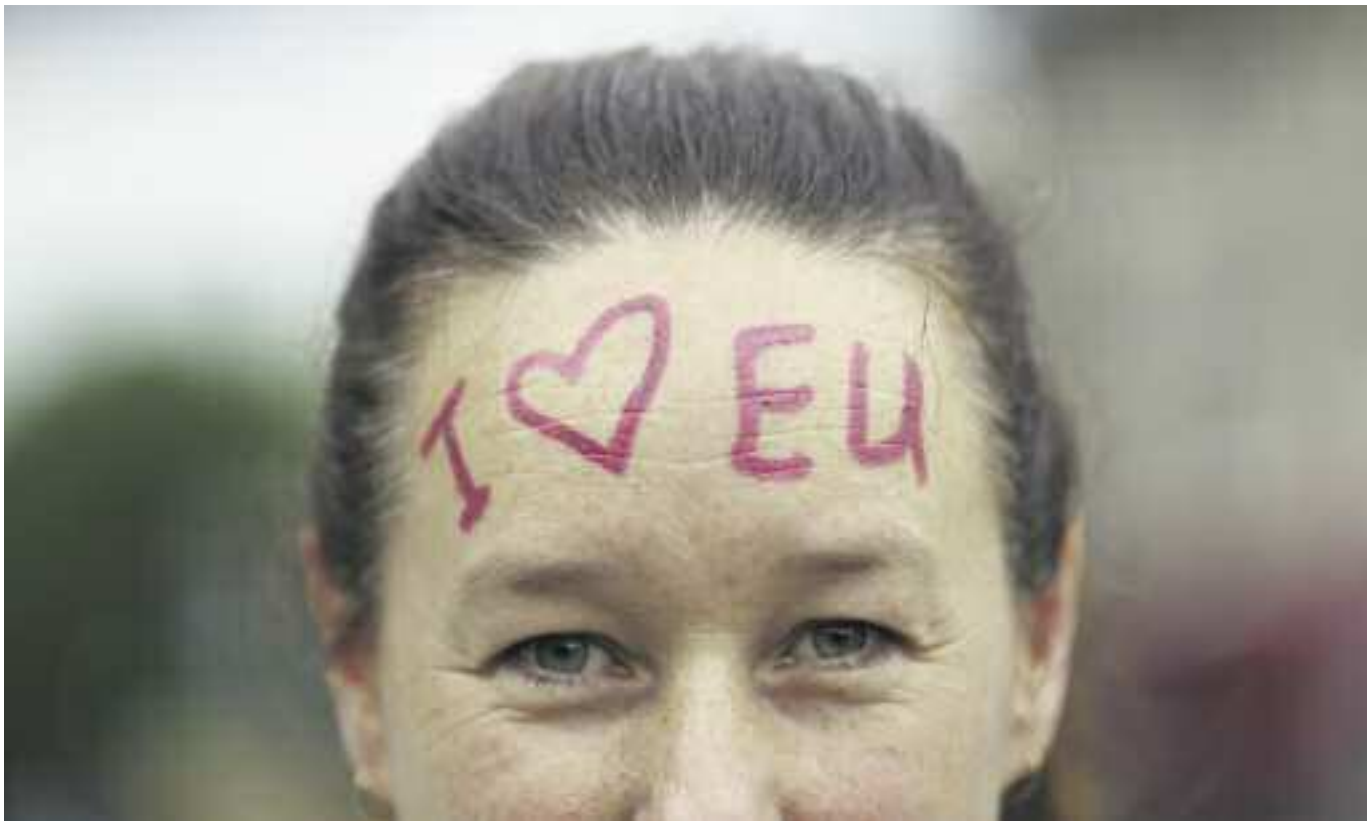 I ♥ EU